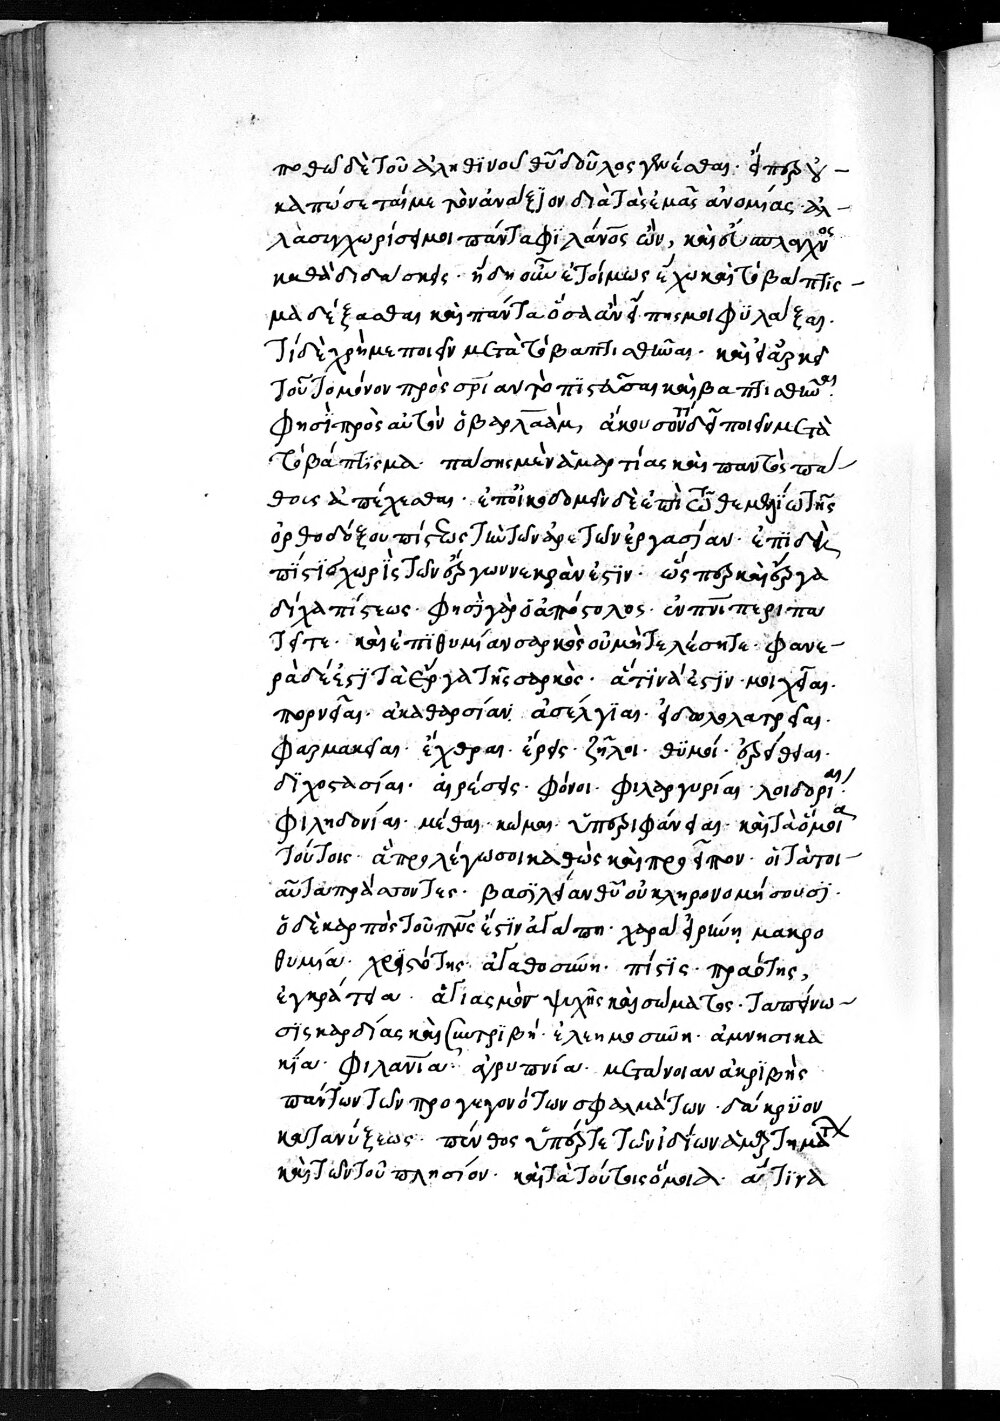 ποθῶ δὲ τοῦ ἀληθϊνοῦ θῦ δοῦλος γενέσθαι· εἴπερ οὐ-
κ ἀπώσεταί με τὸν ἀνάξϊον διὰ τὰς ἐμὰς ἀνομίας· ἀλ-
λὰ συγχωρίσει μοι πάντα φϊλάνος ὢν, καὶ εὔσπλαγχνος
καθὰ διδάσκεις· ἤδη οὖν ἑτοίμως ἔχω καὶ τὸ βάπτϊσ-
μα δέξασθαι καὶ πάντα ὅσα ἂν εἴπης μοι φϋλάξαι·
τί δὲ χρή με ποιεῖν μετὰ τὸ βαπτισθῆναι· καὶ εἰ ἀρκεῖ
τοῦτο μόνον πρὸς σρίαν τὸ πϊστεῦσαι καὶ βαπτισθῆναι·
φησὶ πρὸς αὐτὸν ὁ βαρλαάμ, ἄκουσον τί δεῖ ποιεῖν μετὰ
τὸ βάπτϊσμα· πάσης μὲν ἁμαρτίας καὶ παντὸς πά-
θους ἀπέχεσθαι· ἐποικοδομεῖν δὲ ἐπὶ τῶ θεμελίω τῆς
ὀρθοδόξου πίστεως τὴν τῶν ἀρετῶν ἐργασίαν· ἐπϊδὴ
πίστϊς χωρὶς τῶν ἔργων νεκρὰν ἐστϊν· ὥσπερ καὶ ἔργα
δίχα πίστεως· φησὶ γὰρ ὁ ἀπόστολος· ἐν πνϊ περιπα
τεῖτε· καὶ ἐπϊθυμίαν σαρκὸς οὐ μὴ τελέσητε· φανε-
ρὰ δέ ἐστϊ τὰ ἔργα τῆς σαρκὸς· ἅτϊνά ἐστϊν· μοιχεῖαι·
πορνεῖαι· ἀκαθαρσίαι· ἀσέλγϊαι· εἰδωλολατρεῖαι·
φαρμακεῖαι· ἔχθραι· ἔρεις· ζῆλοι· θϋμοί· ἐρίθειαι·
δϊχοστασίαι· αἱρέσεις· φόνοι· φιλαργυρίαι· λοιδορίαι·
φϊληδονίαι· μέθαι· κώμοι· ὑπεριφάνειαι· καὶ τὰ ὅμοια
τούτοις· ἃ προλέγω σοι καθὼς καὶ προεῖπον· οἱ τὰ τοι-
αῦτα πράσσοντες· βασϊλείαν θῦ οὐ κληρονομήσουσϊ·
ὁ δὲ καρπὸς τοῦ πνς ἔστϊν ἀγάπη· χαρα εἰρήνη μακρο
θυμία· χρϊστότης· ἀγαθοσύνη· πίστϊς· πραότης,
ἐγκράτεια· ἁγιασμὸς ψυχῆς καὶ σώματος· ταπείνω-
σϊς καρδίας καὶ συντρϊβή· ἐλεημοσύνη· ἀμνησικα
κία· φιλανία· ἀγρυπνία· μετάνοιαν ἀκρϊβὴς
πάντων τῶν προγεγονότων σφαλμάτων· δάκρϋον
κατανύξεως· πένθος ὑπέρ τε τῶν ἰδίων ἁμαρτημάτων
καὶ τῶν τοῦ πλησίον· καὶ τὰ τούτοις ὅμοια· ἅτϊνα